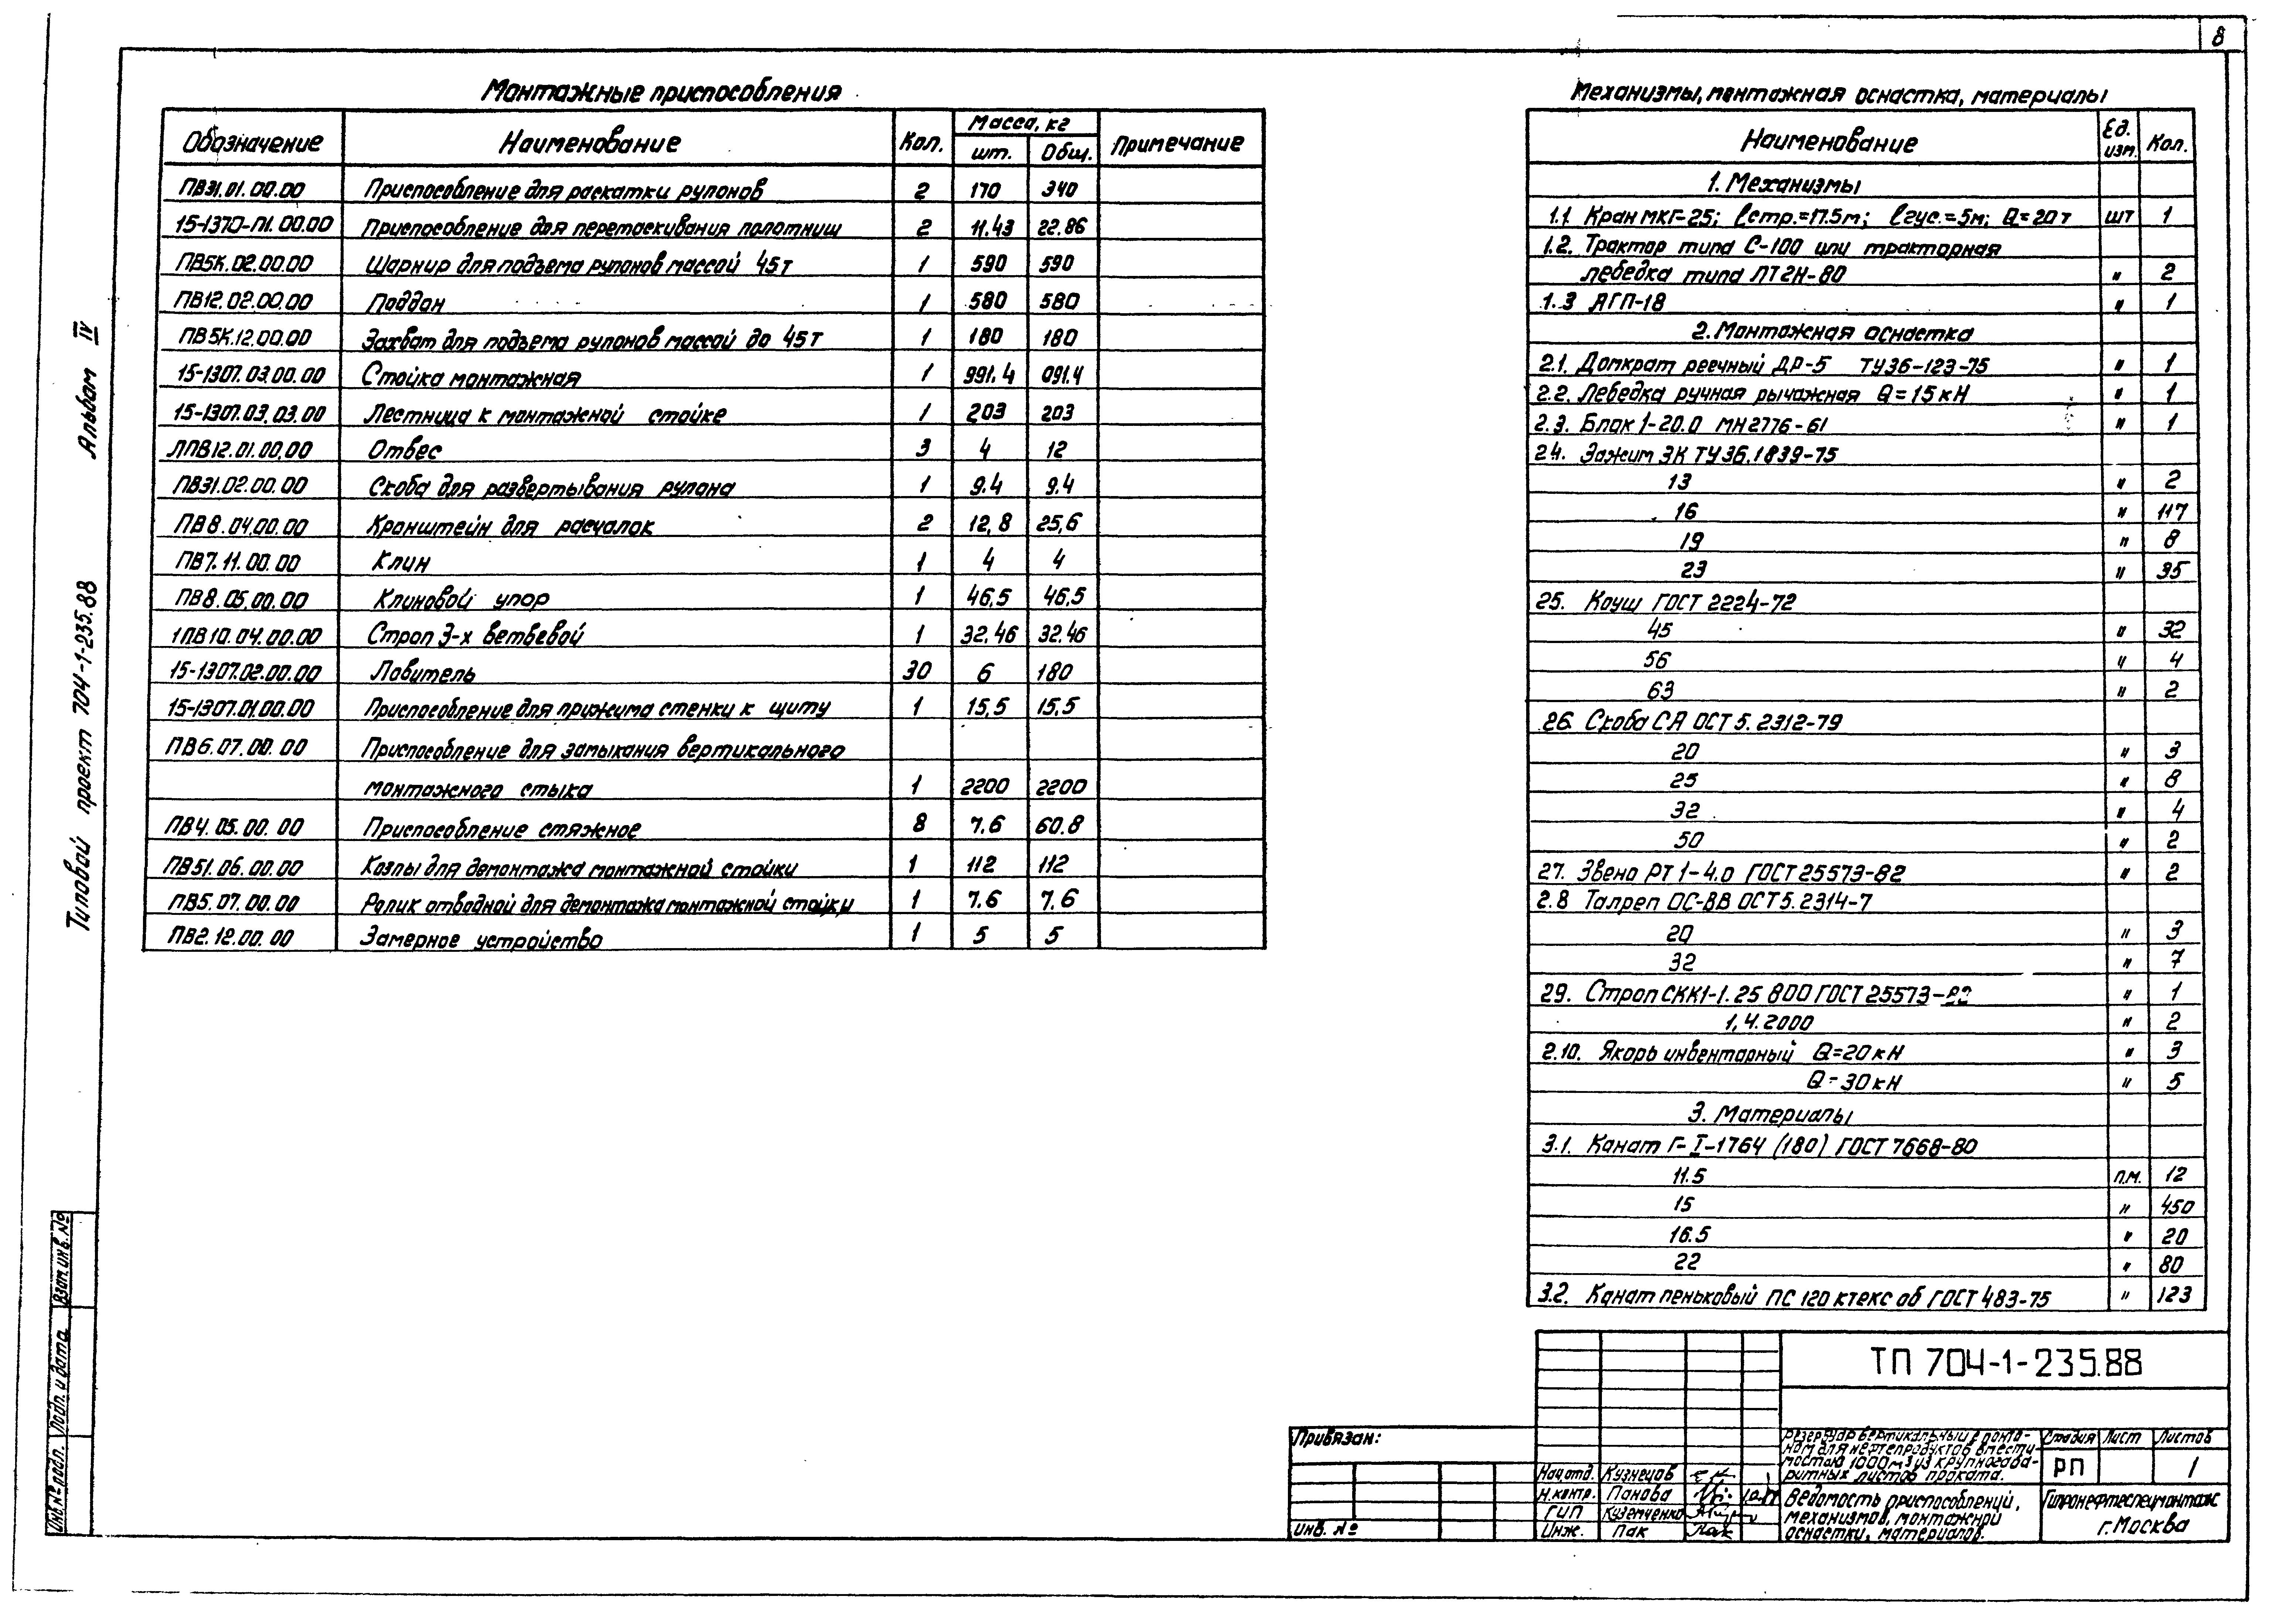 8
Монтажные приспособления
Обозначение Наименование Кол. Масса, кг Примечание
шт. Общ.
ПВ31.01.00.00 Приспособление для раскатки рулонов 2 170 340
15-1370-П1.00.00 Приспособление для перетаскивания полотнищ 2 11.43 22.86
ПВ5К.02.00.00 Шарнир для подъема рулонов массой 45т 1 590 590
ПВ12.02.00.00 Поддон 1 580 580
ПВ5К.12.00.00 Захват для подъема рулонов массой до 45т 1 180 180
15-1307.03.00.00 Стойка монтажная 1 991.4 091.4
15-1307.03.03.00 Лестница к монтажной стойке 1 203 203
ЛПВ12.01.00.00 Отвес 3 4 12
ПВ31.02.00.00 Скоба для развертывания рулона 1 9.4 9.4
ПВ8.04.00.00 Кронштейн для расчалок 2 12,8 25,6
ПВ7.11.00.00 Клин 1 4 4
ПВ8.05.00.00 Клиновой упор 1 46,5 46,5
1ПВ10.04.00.00 Строп 3-х ветвевой 1 32.46 32.46
15-1307.02.00.00 Ловитель 30 6 180
15-1307.01.00.00 Приспособление для прижима стенки к щиту 1 15,5 15,5
ПВ6.07.00.00 Приспособление для замыкания вертикального
монтажного стыка 1 2200 2200
ПВ4.05.00.00 Приспособление стяжное 8 7.6 60.8
ПВ51.06.00.00 Козлы для демонтажа монтажной стойки 1 112 112
ПВ5.07.00.00 Ролик отводной для демонтажа монтажной стойки 1 7.6 7.6
ПВ2.12.00.00 Замерное устройство 1 5 5
Механизмы, монтажная оснастка, материалы
Наименование Ед. изм. Кол.
1. Механизмы
1.1 Кран МКГ-25; ℓстр.=17.5м; ℓгус.=5м; Q=20т шт 1
1.2. Трактор типа С-100 или тракторная
лебедка типа ЛТ2Н-80 " 2
1.3 АГП-18 " 1
2. Монтажная оснастка
2.1. Домкрат реечный ДР-5 ТУ36-123-75 " 1
2.2. Лебедка ручная рычажная Q=15кН " 1
2.3. Блок 1-20.0 МН2776-61 " 1
24. Зажим ЗК ТУ36.1839-75
13 " 2
16 " 117
19 " 8
23 " 35
25. Коуш ГОСТ 2224-72
45 " 32
56 " 4
63 " 2
26. Скоба СА ОСТ 5.2312-79
20 " 3
25 " 8
32 " 4
50 " 2
27. Звено РТ 1-4.0 ГОСТ 25573-82 " 2
2.8 Талреп ОС-ВВ ОСТ5.2314-7
20 " 3
32 " 7
29. Строп СКК1-1.25 800 ГОСТ 25573-82 " 1
1,4.2000 " 2
2.10. Якорь инвентарный Q=20кН " 3
Q=30кН " 5
3. Материалы
3.1. Канат Г-I-1764 (180) ГОСТ 7668-80
11.5 п.м. 12
15 " 450
16.5 " 20
22 " 80
3.2. Канат пеньковый ПС 120 ктекс об ГОСТ 483-75 " 123
Типовой проект 704-1-235.88 Альбом IV
Инв.№ подл. Подп. и дата Взам.инв.№
Привязан:
Инв. №
ТП 704-1-235.88
Резервуар вертикальный с понто-
ном для нефтепродуктов вмести-
мостью 1000м³ из крупногаба-
ритных листов проката.
Стадия Лист Листов
РП 1
Нач.отд. Кузнецов
Н.контр. Панова
ГИП Куземченко
Инж. Пак
Ведомость приспособлений,
механизмов, монтажной
оснастки, материалов.
Гипронефтеспецмонтаж
г.Москва